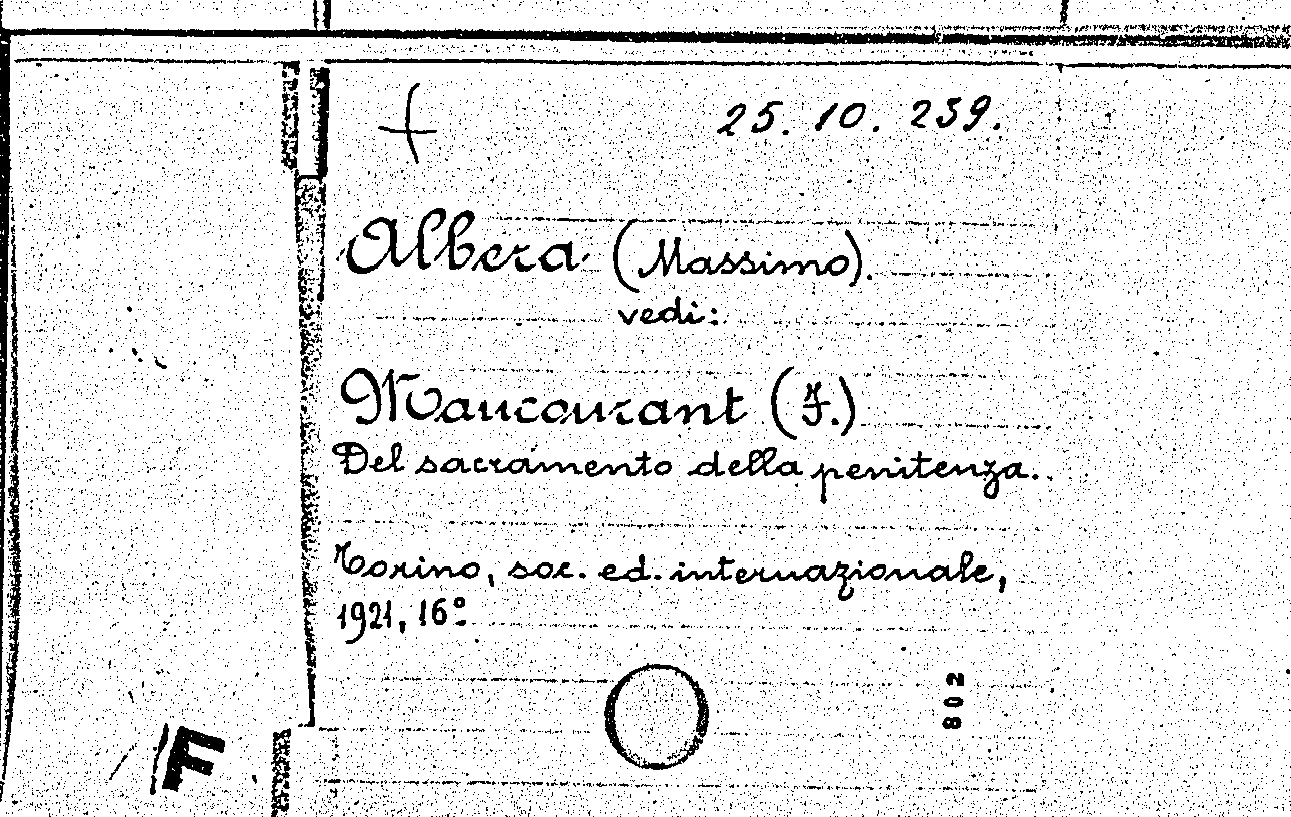 25. 10. 239.
Albera (Massimo).
vedi:
Maucourant (F.)
Del sacramento della penitenza.
Torino, soc. ed. internazionale,
1921, 16º
802
F